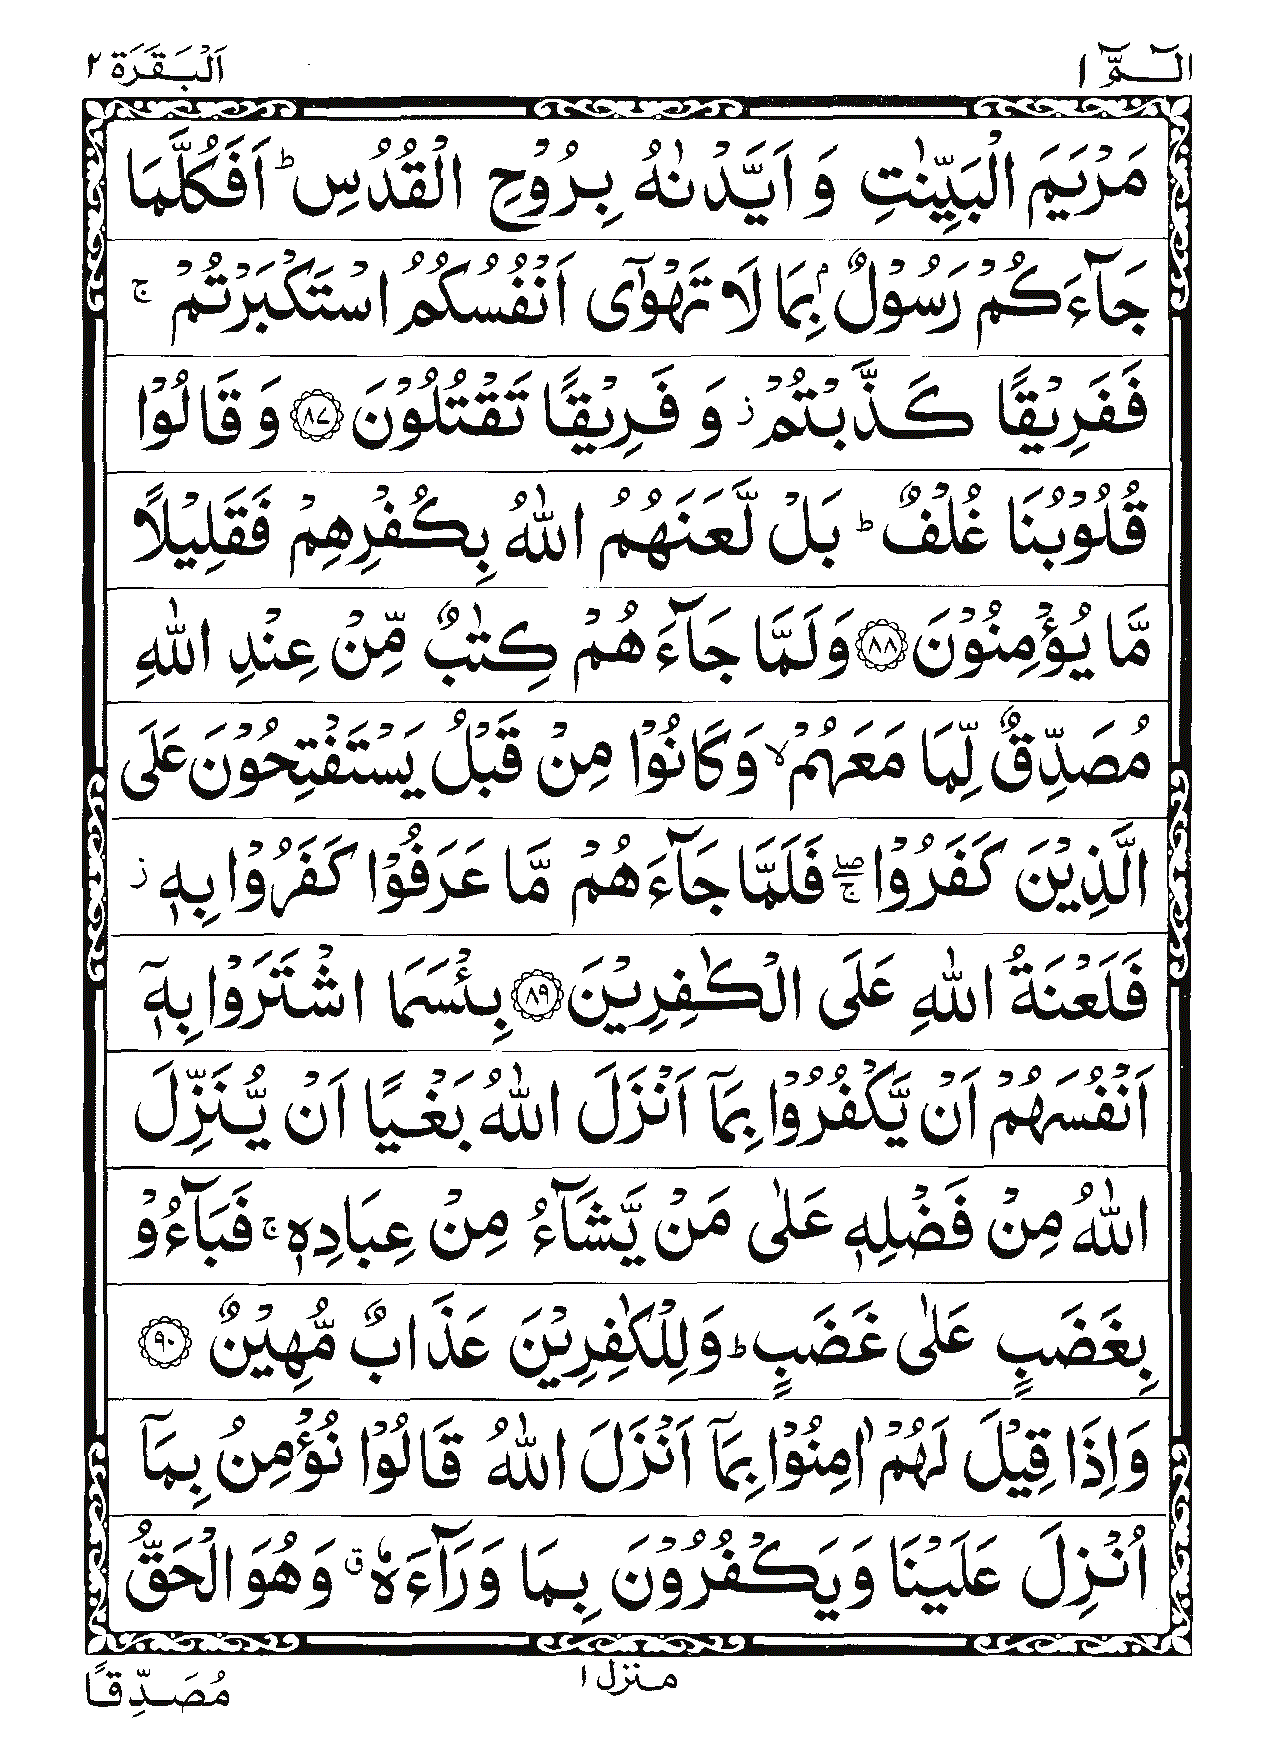 الٓمّٓ ١
اَلْبَقَرَة ٢
مَرْيَمَ الْبَيِّنٰتِ وَ اَيَّدْنٰهُ بِرُوْحِ الْقُدُسِ ؕ اَفَكُلَّمَا
جَآءَكُمْ رَسُوْلٌۢ بِمَا لَا تَهْوٰۤى اَنْفُسُكُمُ اسْتَكْبَرْتُمْ ۚ
فَفَرِيْقًا كَذَّبْتُمْ ؗ وَ فَرِيْقًا تَقْتُلُوْنَ ﴿۸۷﴾ وَ قَالُوْا
قُلُوْبُنَا غُلْفٌ ؕ بَلْ لَّعَنَهُمُ اللّٰهُ بِكُفْرِهِمْ فَقَلِيْلًا
مَّا يُؤْمِنُوْنَ ﴿۸۸﴾ وَلَمَّا جَآءَهُمْ كِتٰبٌ مِّنْ عِنْدِ اللّٰهِ
مُصَدِّقٌ لِّمَا مَعَهُمْ ۙ وَكَانُوْا مِنْ قَبْلُ يَسْتَفْتِحُوْنَ عَلَى
الَّذِيْنَ كَفَرُوْا ۖۚ فَلَمَّا جَآءَهُمْ مَّا عَرَفُوْا كَفَرُوْا بِهٖ ؗ
فَلَعْنَةُ اللّٰهِ عَلَى الْكٰفِرِيْنَ ﴿۸۹﴾ بِئْسَمَا اشْتَرَوْا بِهٖۤ
اَنْفُسَهُمْ اَنْ يَّكْفُرُوْا بِمَاۤ اَنْزَلَ اللّٰهُ بَغْيًا اَنْ يُّنَزِّلَ
اللّٰهُ مِنْ فَضْلِهٖ عَلٰى مَنْ يَّشَآءُ مِنْ عِبَادِهٖ ۚ فَبَآءُوْ
بِغَضَبٍ عَلٰى غَضَبٍ ؕ وَلِلْكٰفِرِيْنَ عَذَابٌ مُّهِيْنٌ ﴿۹۰﴾
وَاِذَا قِيْلَ لَهُمْ اٰمِنُوْا بِمَاۤ اَنْزَلَ اللّٰهُ قَالُوْا نُؤْمِنُ بِمَاۤ
اُنْزِلَ عَلَيْنَا وَيَكْفُرُوْنَ بِمَا وَرَآءَهٗ ۗ وَهُوَ الْحَقُّ
منزل ١
مُصَدِّقًا